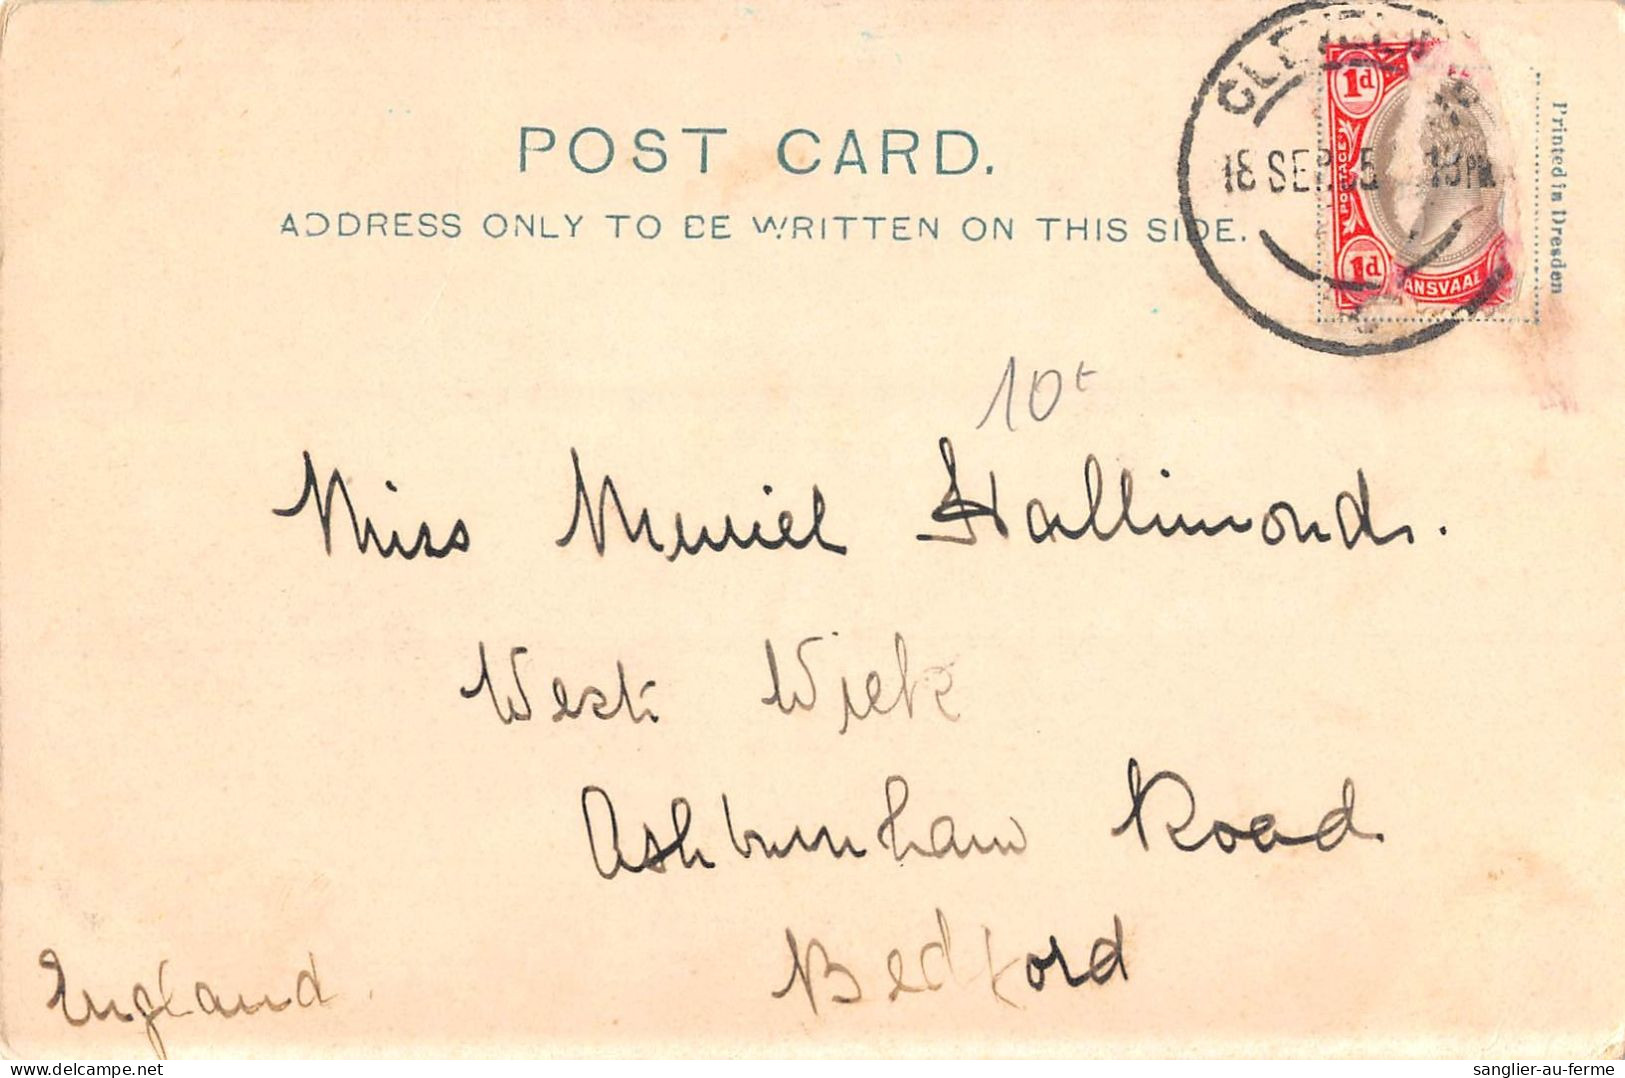 POST CARD.
ADDRESS ONLY TO BE WRITTEN ON THIS SIDE.
18 SEP. 05
1d
POSTAGE
1d
ANSVAAL
Printed in Dresden
10t
Miss Muriel Hallimonds.
West
Ashburnham Road
Bedford
England.
sanglier-au-ferme